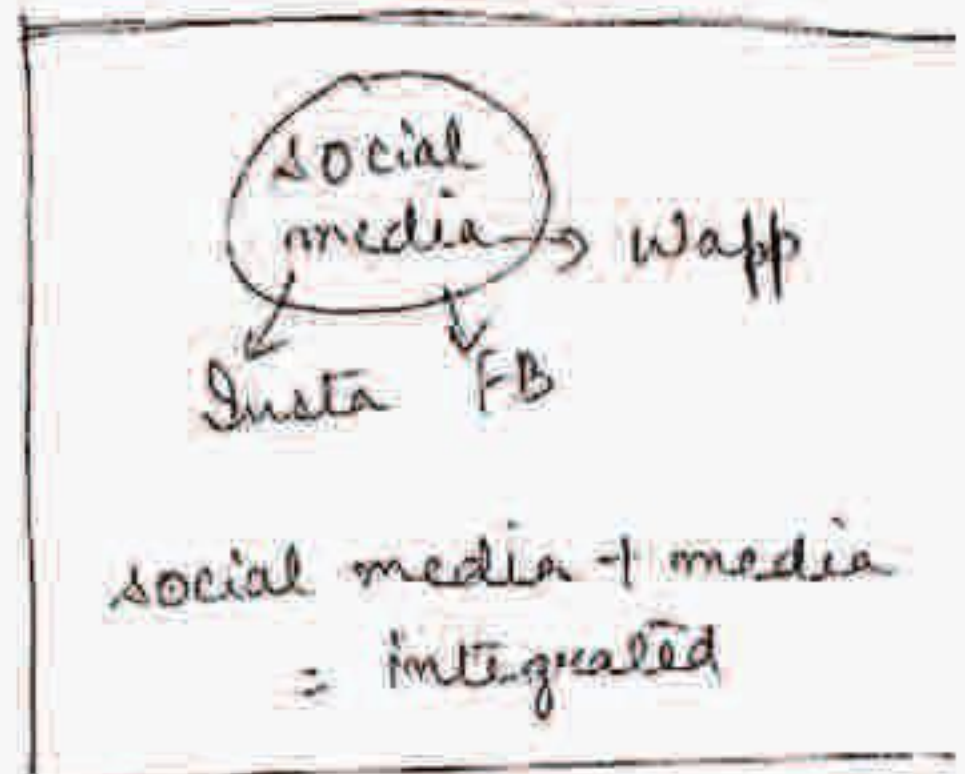 social
media → Wapp
Insta FB
social media + media
= integrated